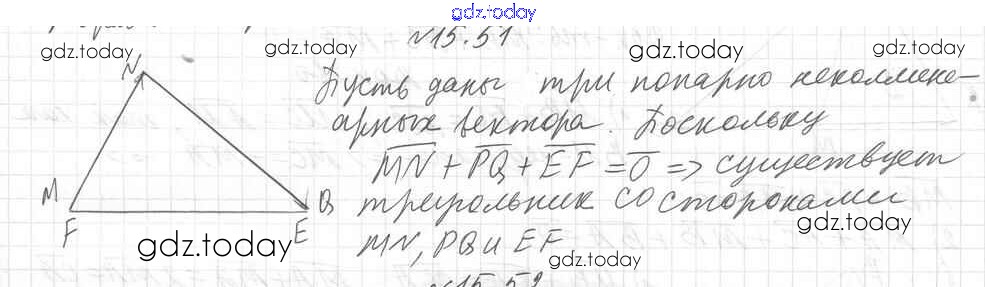 gdz.today
№15.51
gdz.today
gdz.today
gdz.today
gdz.today
N
Пусть даны три попарно неколлине-
арных вектора. Поскольку
gdz.today
gdz.today
MN + PQ + EF = 0 => существует
M
Q
треугольник со сторонами
F
E
gdz.today
gdz.today
MN, PQ и EF.
gdz.today
№15.52